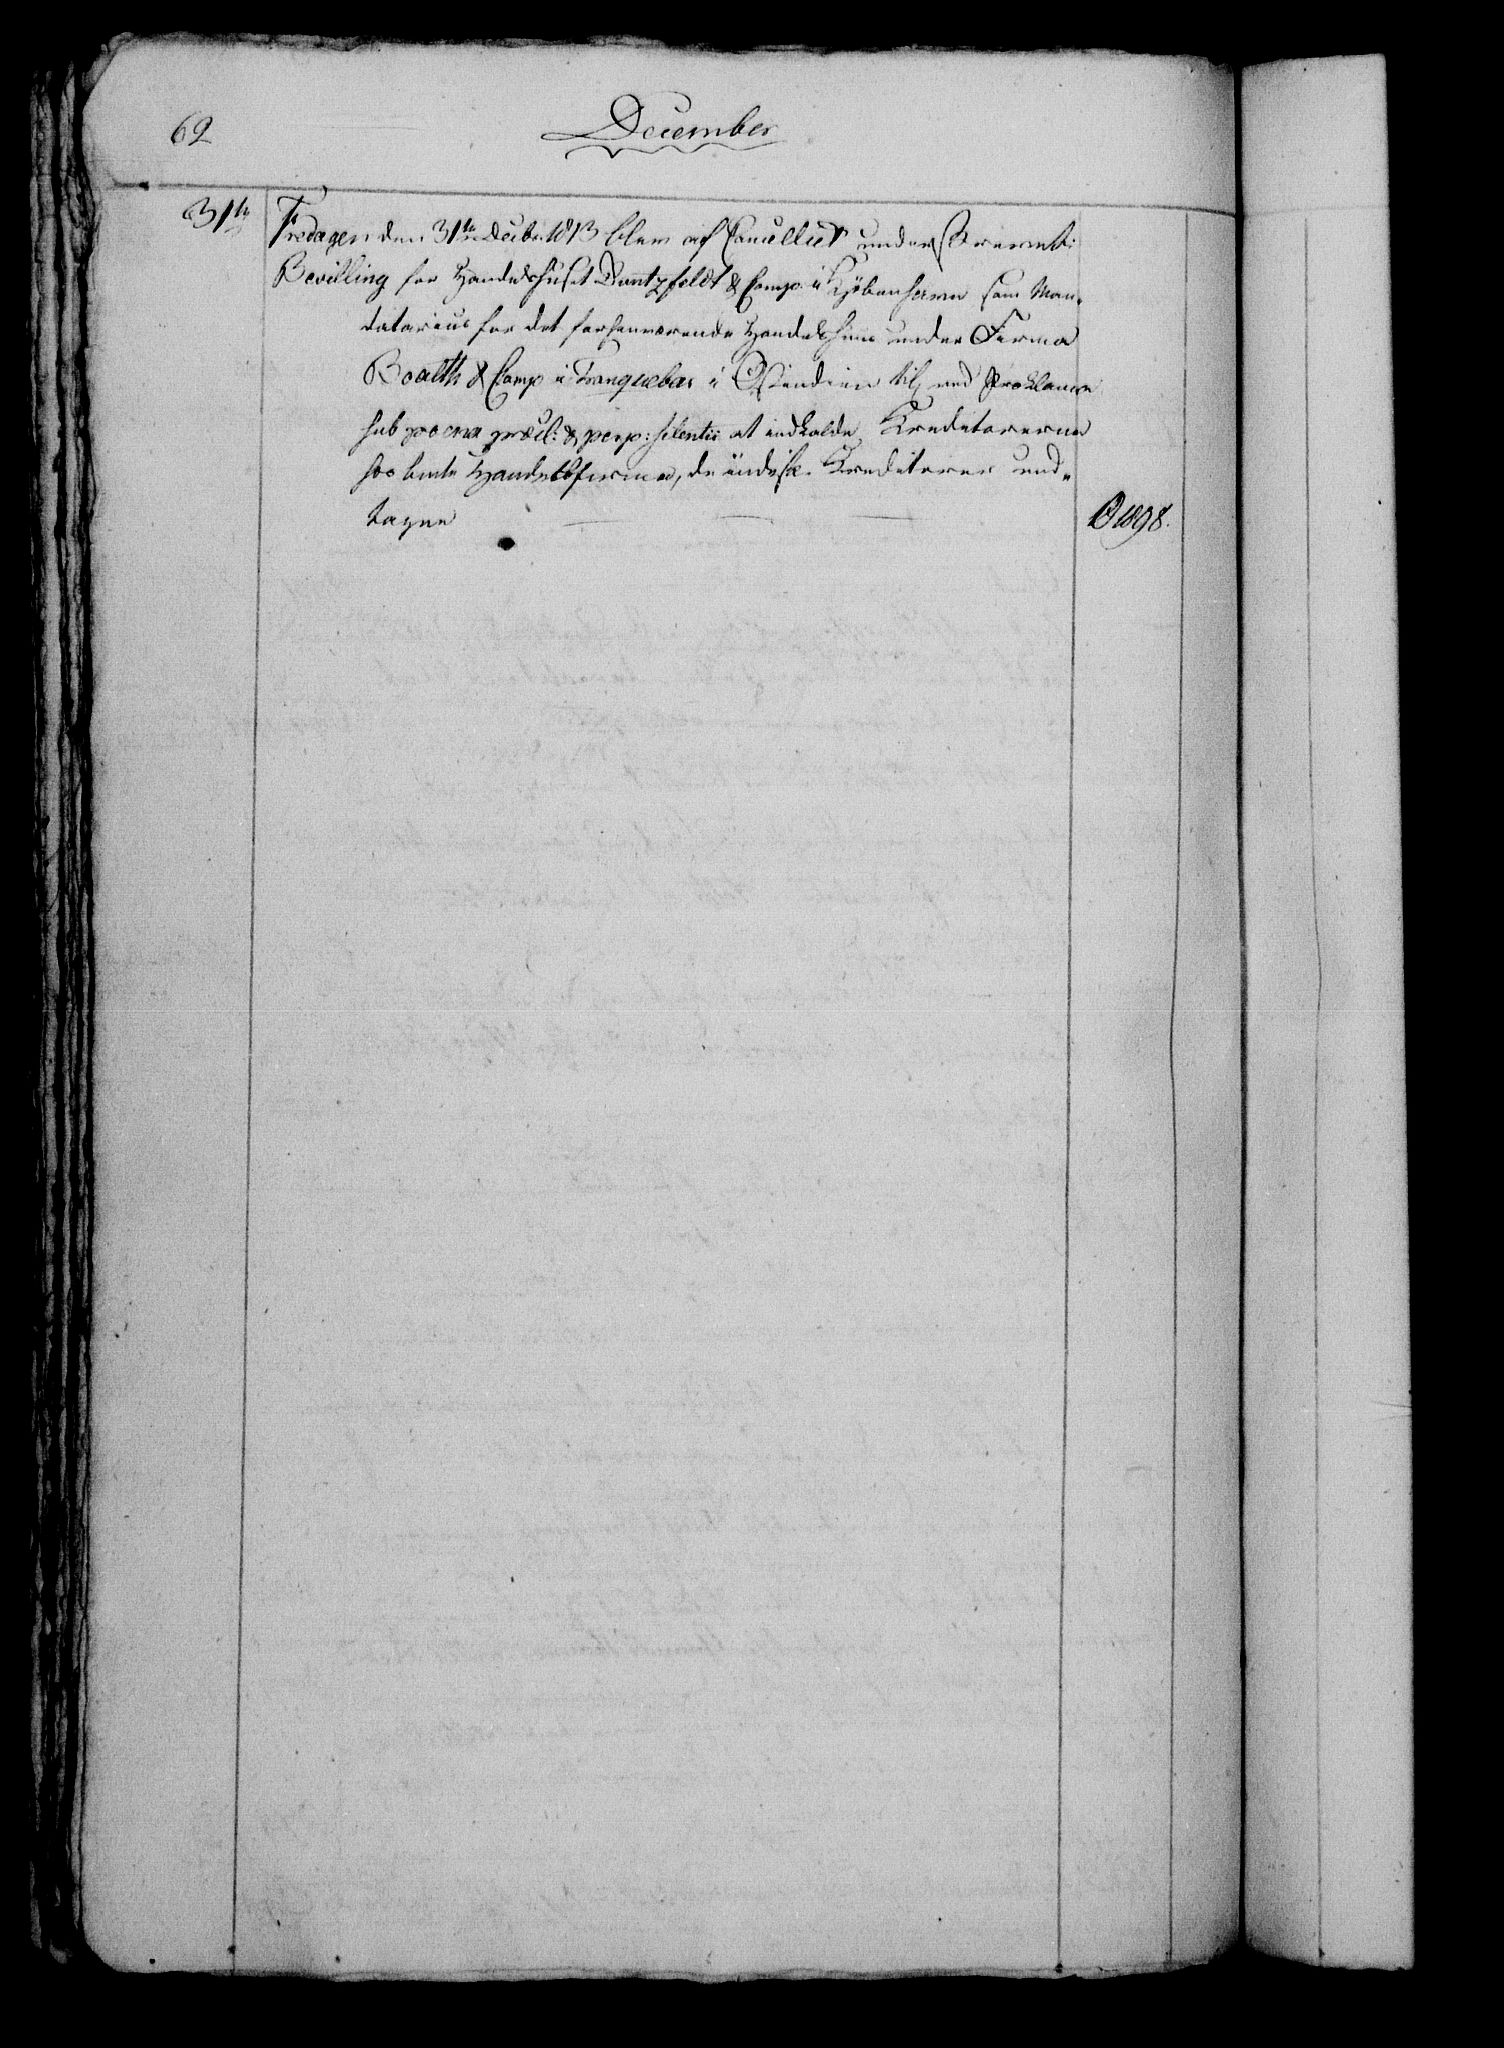 62
December
31te
Fredagen den 31te Decbr: 1813 blev af Cancelliet under
Bevilling for Handelshuset Duntzfeldt & Comp. i Kjöbenhavn som Man-
datarius for det forhenværende Handelshuus under Firma
Boalth & Comp i Tranquebar i Ostindien til ved Proklama
sub poena præcl: & perp: silentii at indkalde Kreditorerne
for bemte Handelsfirma, de indiske Kreditorer und-
tagne
O 1898.